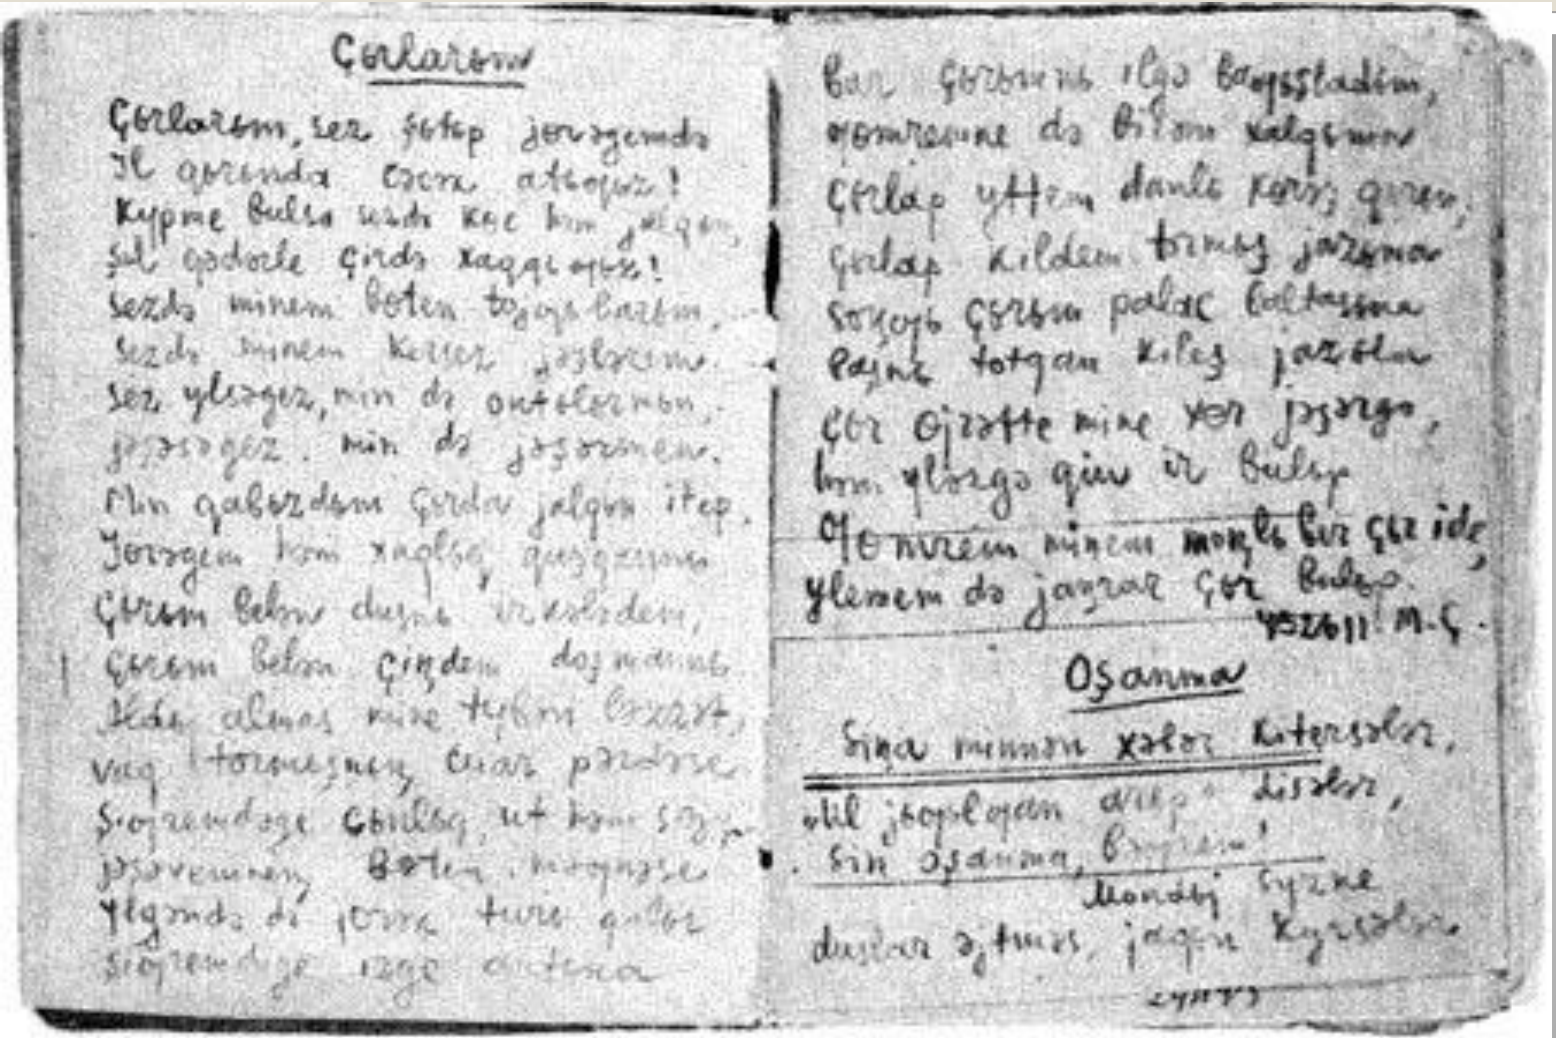 Çьrlarьm
Çьrlarьm, sez şьtьp jɵrəgemdə
Il qьrьnda cəcək atьƣьz!
Kypme bulsa sezdə kɵc həm jalqьn,
Şul qədərle çirdə xaqqьƣьz!
Sezdə minem bɵten tojƣьlarьm,
Sezdə minem kersez jəşlərem.
Sez ylsəgez, min də ontьlьrmьn,
jəşəsəgez, min də jəşərmen.
Min qabьzdьm çьrda jalqьn itep,
Jɵrəgem həm xaqlьq quşqannь
Çьrьm belən dusnь irkələdem,
Çьrьm belən çiŋdem doşmannь
Aldьj almas mine tybən ləzzət,
vaq tormьşnьŋ cuar pərdəse
Şiƣremdəge çьnlьq, ut həm
jəşəvemneŋ bɵten məƣnəse
Ylgəndə də jɵrək turь qalьr
Şiƣremdəge izge antьna
bar çьrьmnь ilgə baƣьşladьm,
ƣomremne də birəm xalqьma
Çьrlap yttem danlь kɵrəş qьrьn,
çьrlap kildem tormьş jazьna
Soŋƣь çьrьm palac baltasьna
başnь totqan kileş jazьla
Çьr ɵjrətte mine xɵr jəşərgə,
həm ylərgə qьju ir bulьp
Ƣomrem minem moŋlь ber çьr ide,
ylemem də jaŋrar çьr bulьp.
M.Ç.
Oşanma
Siŋa minnən xəbər kitersələr,
disələr,
Sin oşanma,
syzne
duslar əjtməs, jaqьn kyrsələr.